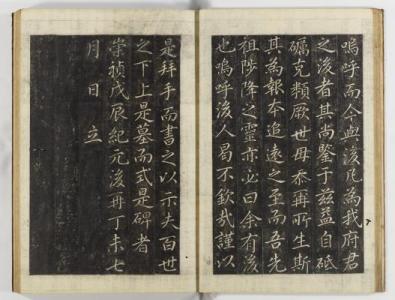 嗚呼而今與後凡為我府君
之後者其尚鑒于玆益自砥
礪克類厥世毋忝再所生斯
其為報本追遠之至而吾先
祖陟降之靈亦必曰余有後
也嗚呼後人曷不欽哉謹以
是拜手而書之以示大百世
之下上是墓而式是碑者
崇禎戊辰紀元後再丁未七
月 日 立